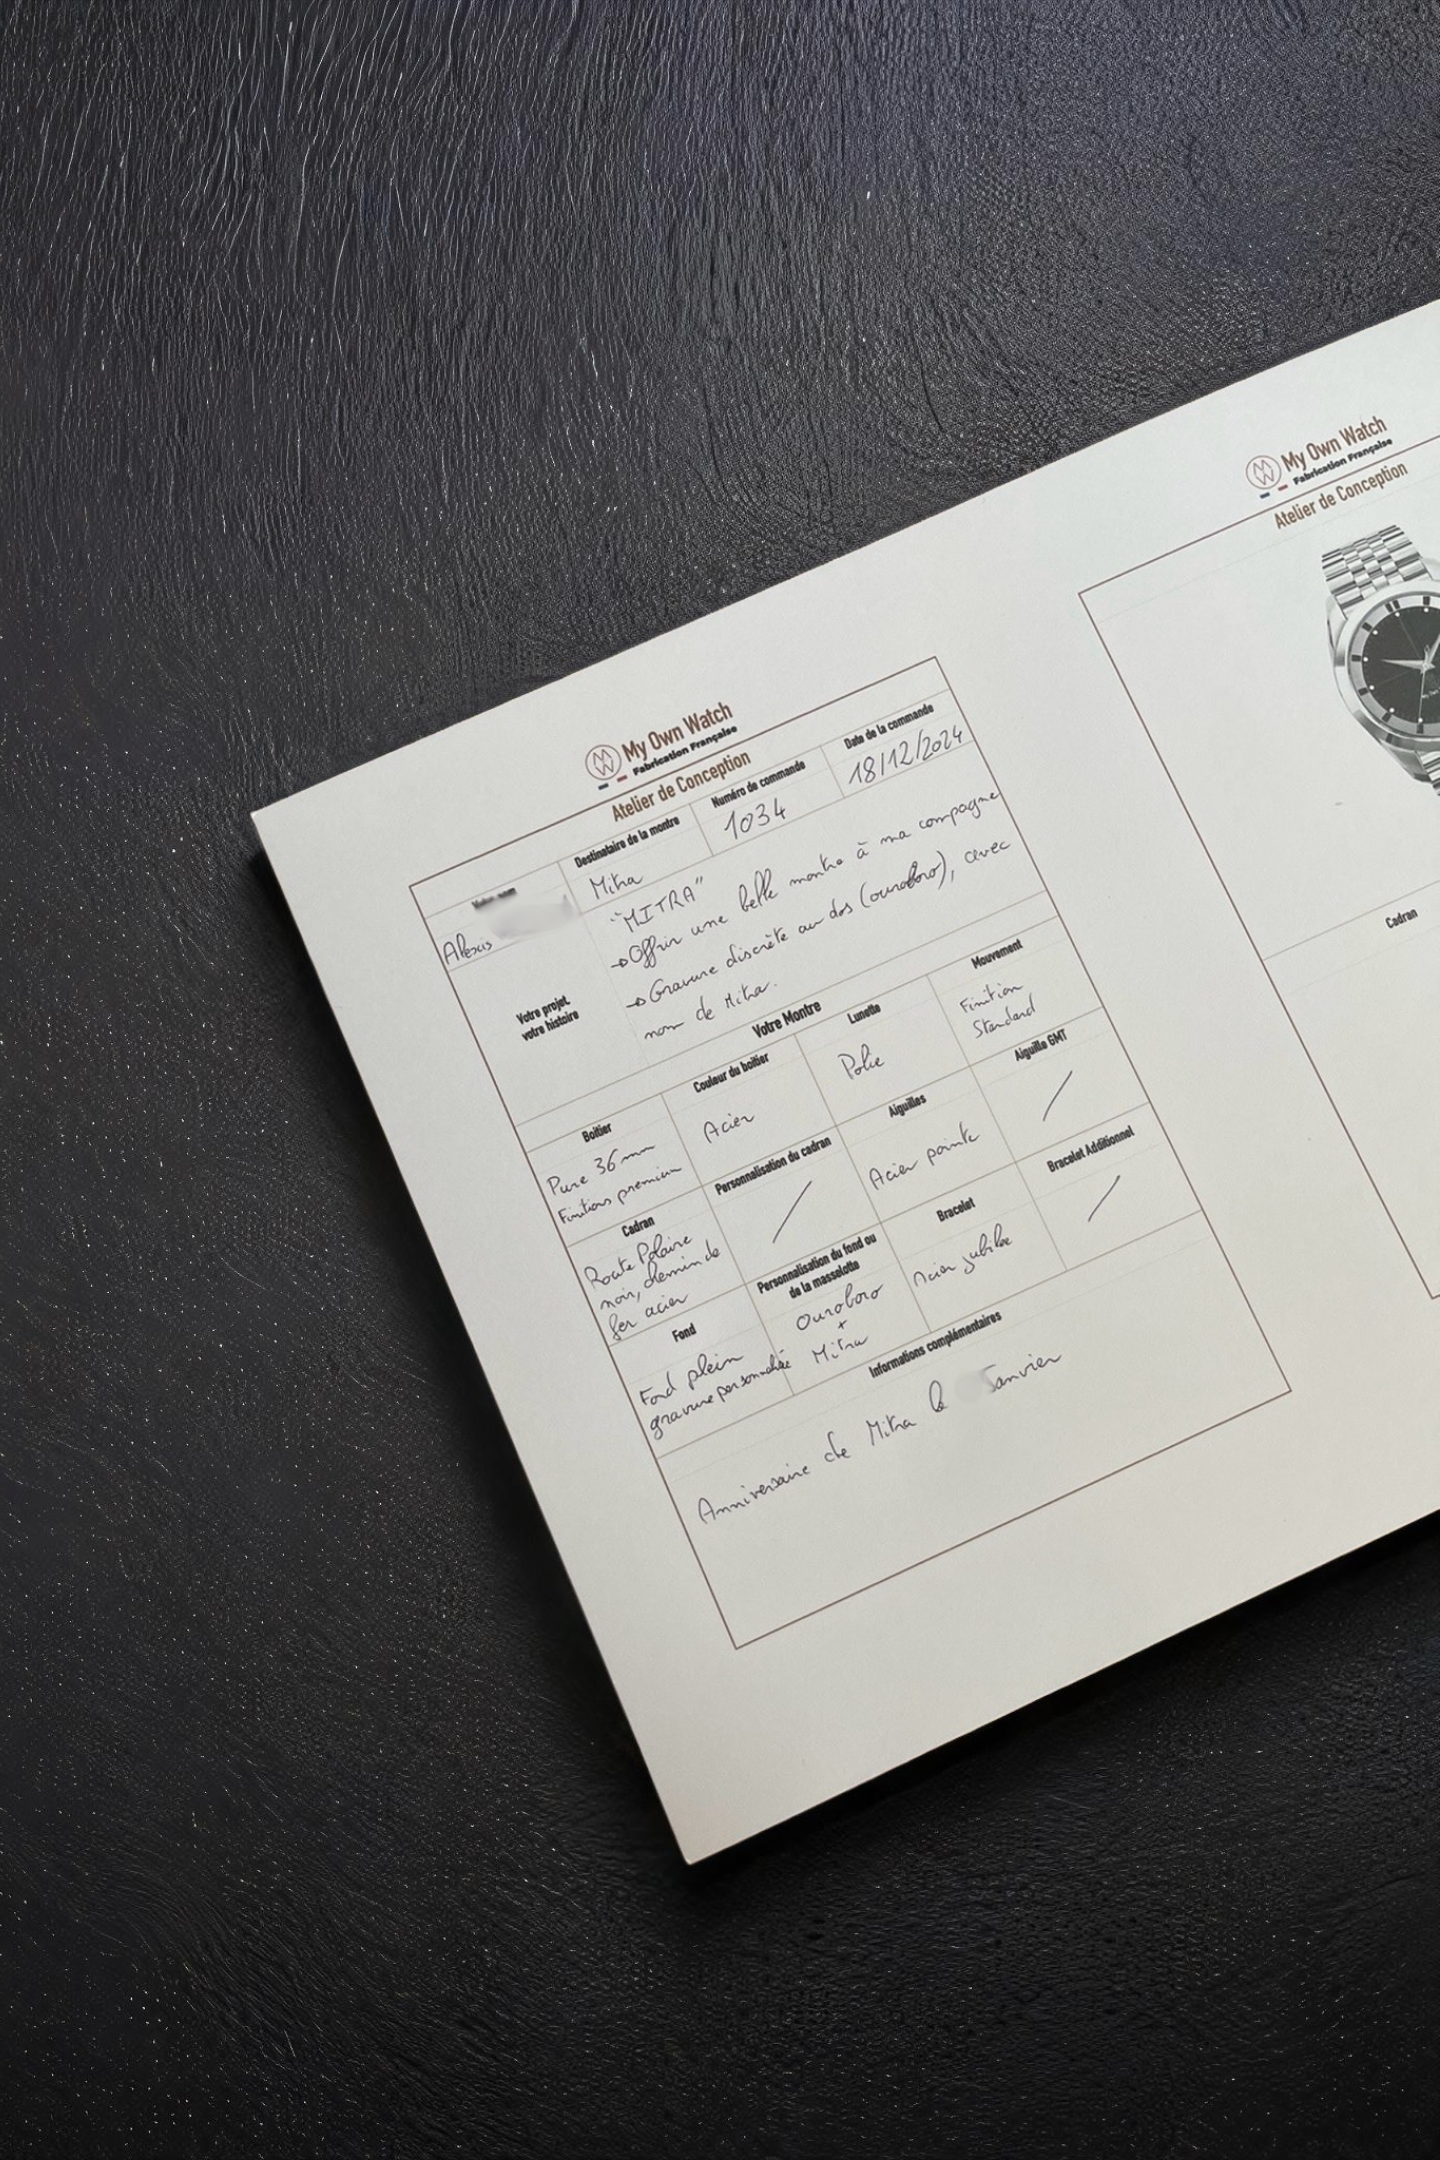 My Own Watch
Fabrication Française
Atelier de Conception
Destinataire de la montre
Numéro de commande
Date de la commande
Alexis
Mitra
1034
18/12/2024
Votre projet,
votre histoire
"MITRA"
→ Offrir une belle montre à ma compagne
→ Gravure discrète au dos (ouroboro), avec
nom de Mitra.
Votre Montre
Boitier
Couleur du boitier
Lunette
Mouvement
Pure 36 mm
Finitions premium
Acier
Polie
Finition
Standard
Cadran
Personnalisation du cadran
Aiguilles
Aiguille GMT
Route Polaire
noir, chemin de
fer acier
/
Acier pointe
/
Fond
Personnalisation du fond ou
de la masselotte
Bracelet
Bracelet Additionnel
Fond plein
gravure personnalisée
Ouroboro
+
Mitra
Acier jubilee
/
Informations complémentaires
Anniversaire de Mitra le Janvier
My Own Watch
Fabrication Française
Atelier de Conception
Cadran